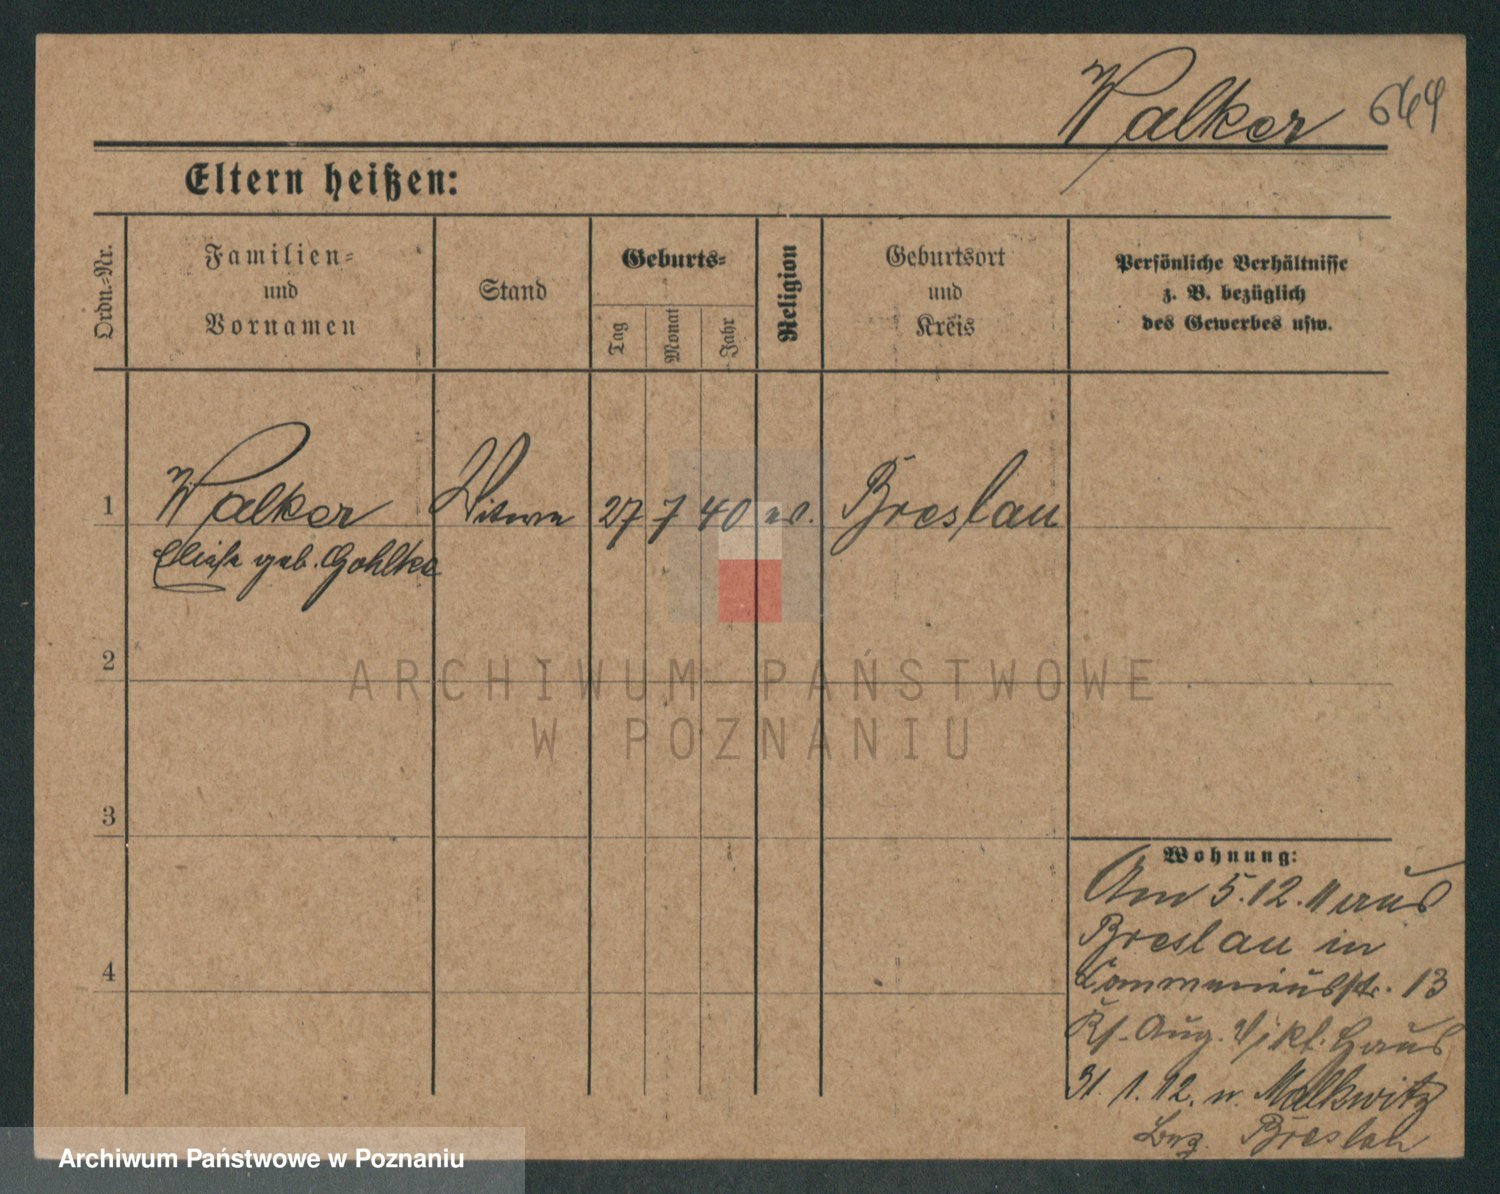 Walker 649
Eltern heißen:
Ordn.-Nr.
Familien-
und
Vornamen
Stand
Geburts-
Tag
Monat
Jahr
Religion
Geburtsort
und
Kreis
Persönliche Verhältnisse
z. B. bezüglich
des Gewerbes usw.
1 Walker Witwe 27 7 40 ev. Breslau
geb. Gohlke
2
ARCHIWUM PAŃSTWOWE
W POZNANIU
3
Wohnung:
Am 5.12.11 aus
Breslau in
13
Aug. Haus
31.1.12. n. Malkwitz
Breslau
4
Archiwum Państwowe w Poznaniu